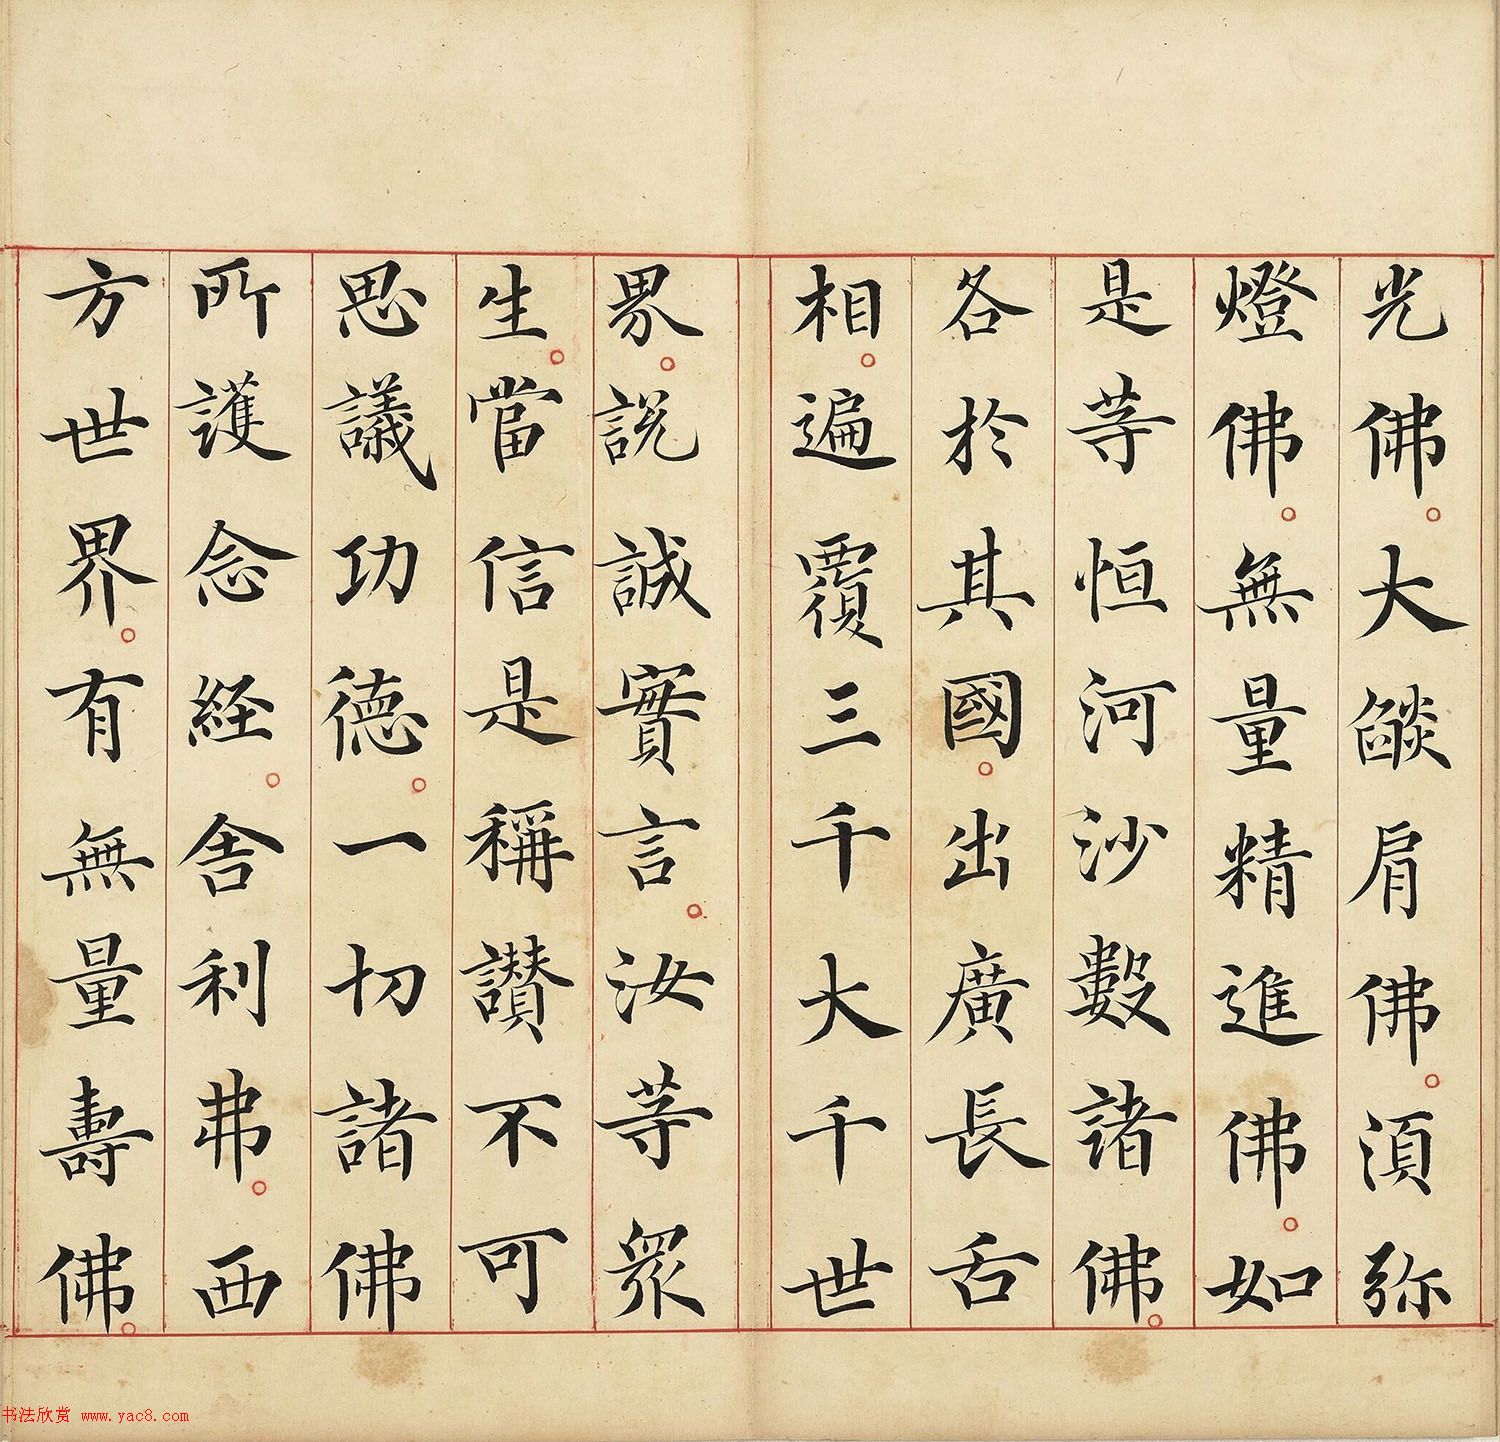 光佛。大燄肩佛。須弥
燈佛。無量精進佛。如
是等恒河沙數諸佛。
各於其國。出廣長舌
相。遍覆三千大千世
界。說誠實言。汝等眾
生。當信是稱讚不可
思議功德。一切諸佛
所護念経。舍利弗。西
方世界。有無量壽佛。
书法欣赏 www.yac8.com